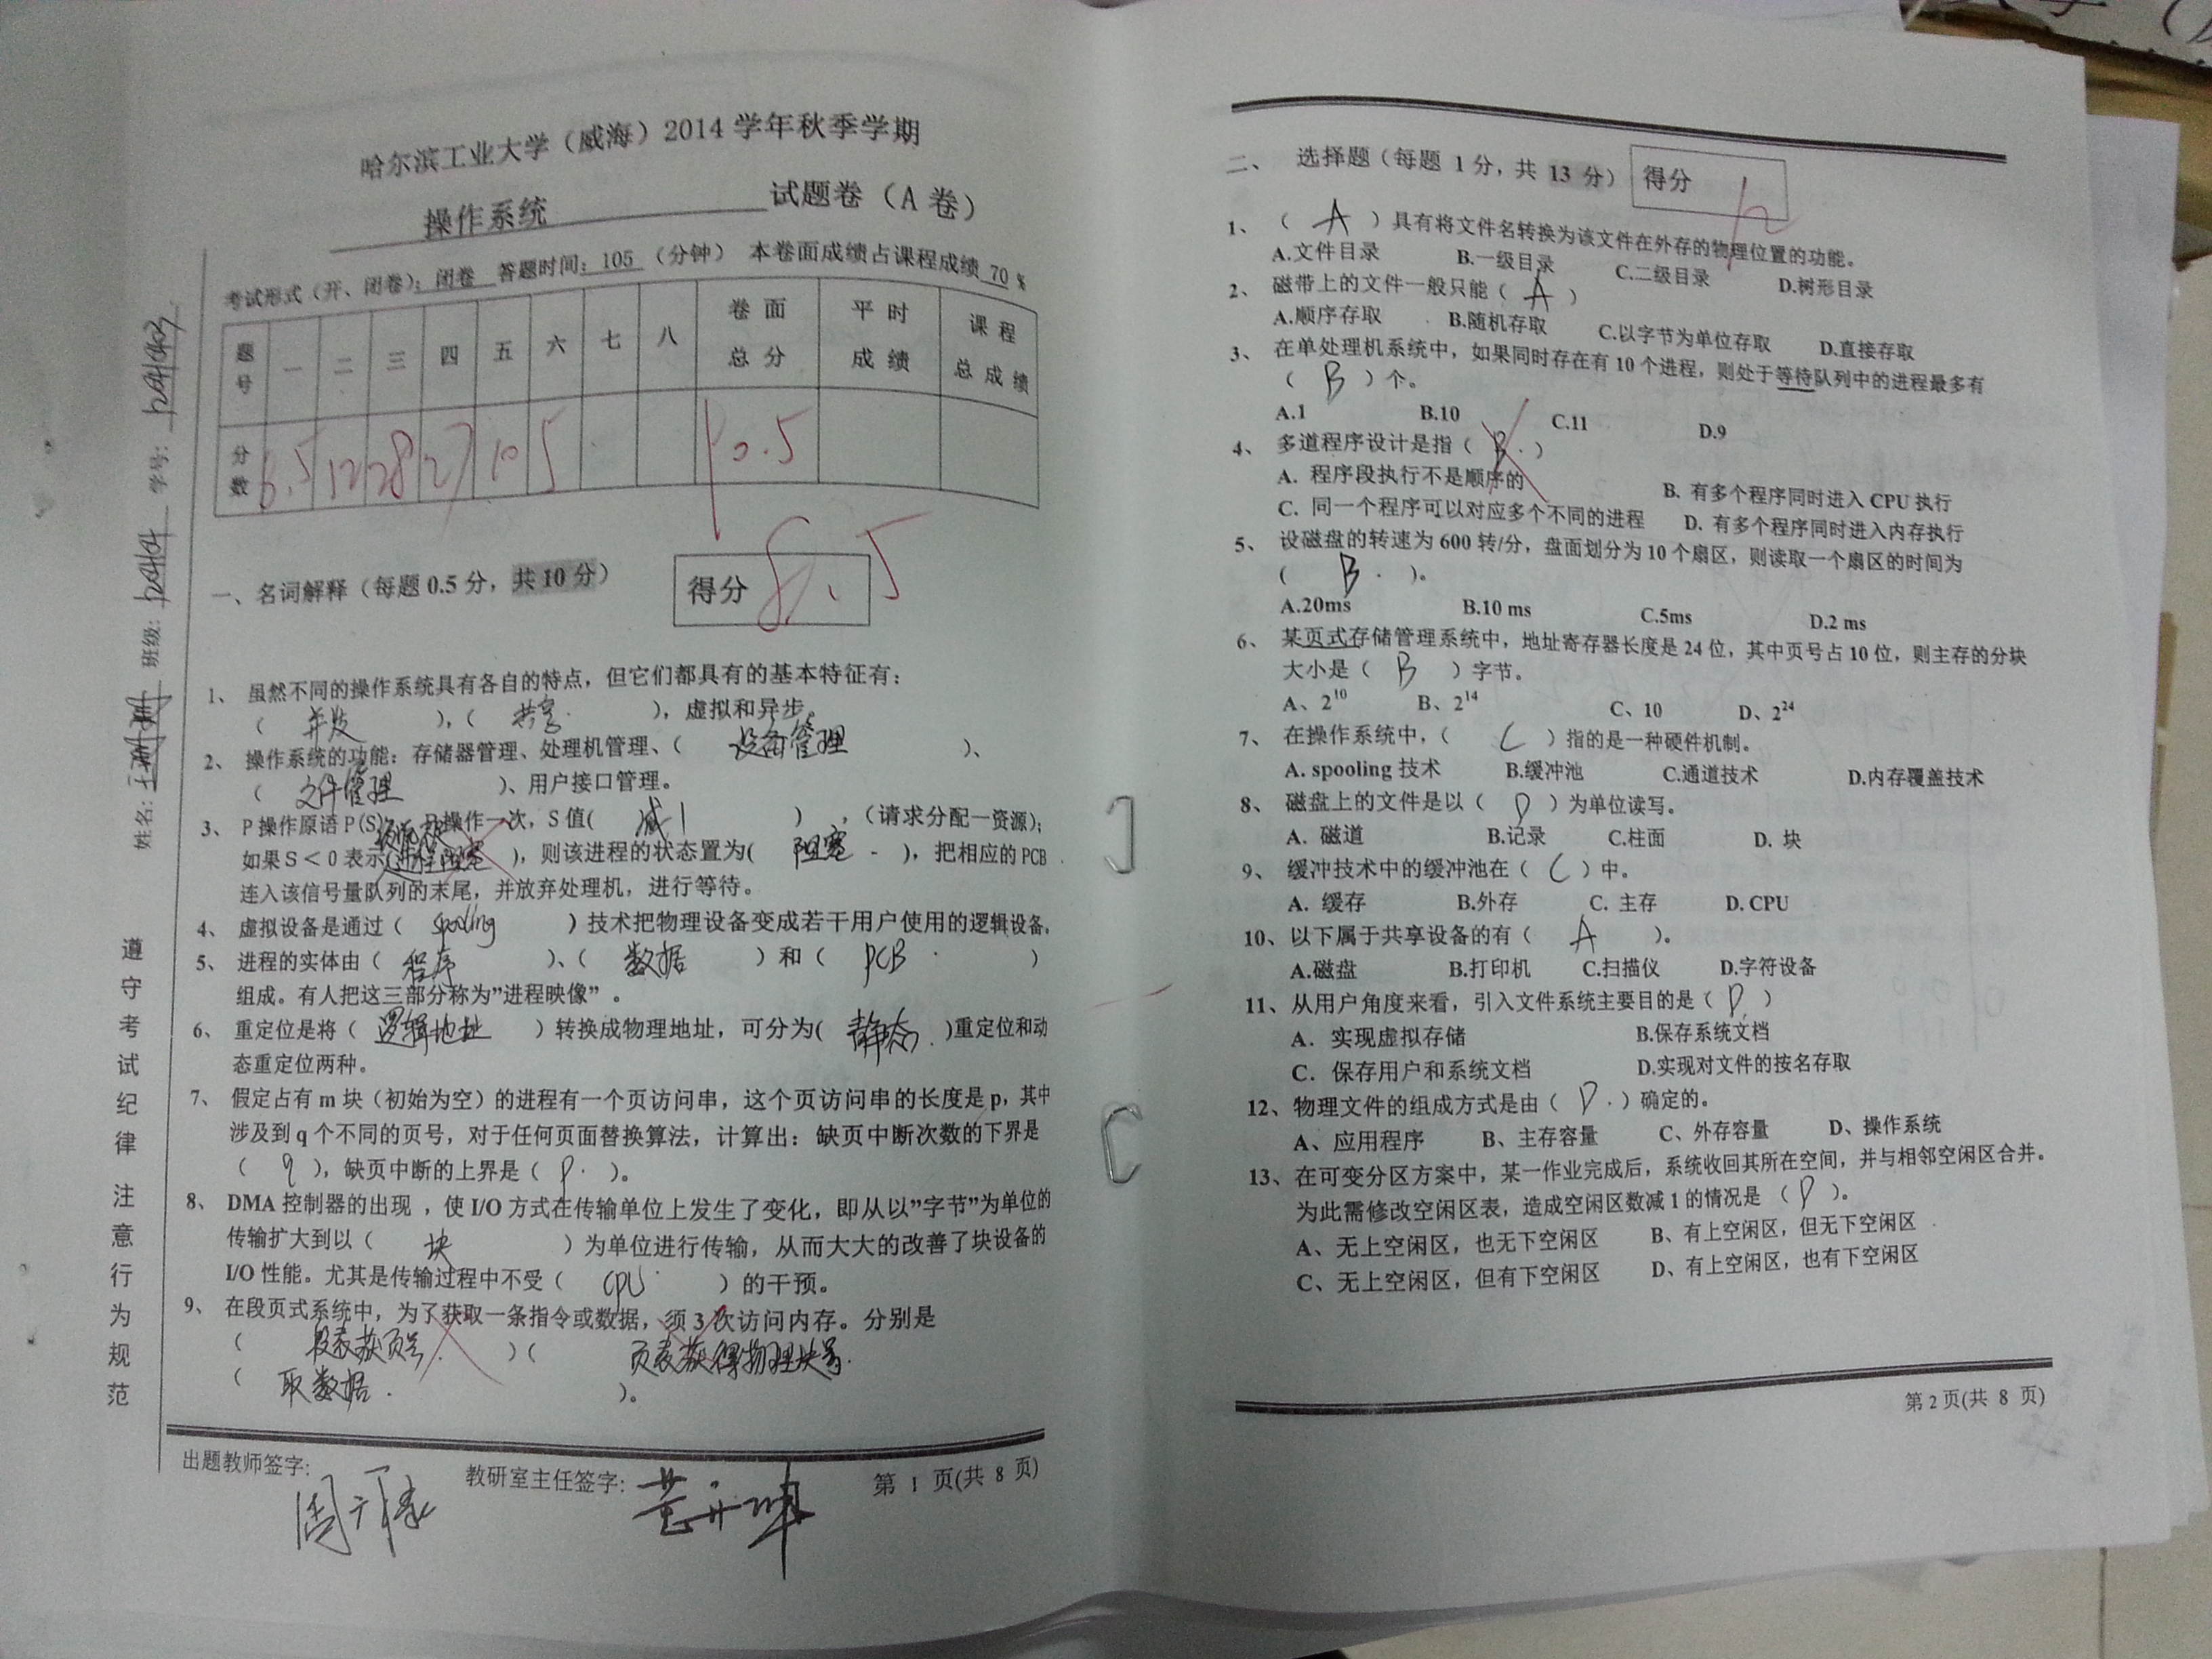 哈尔滨工业大学（威海）2014 学年秋季学期
操作系统 试题卷（A 卷）
考试形式（开、闭卷）：闭卷 答题时间：105 （分钟） 本卷面成绩占课程成绩 70 %
题号 一 二 三 四 五 六 七 八 卷面总分 平时成绩 课程总成绩
分数 8.5 12 28 27 10 5 90.5
一、名词解释（每题 0.5 分，共 10 分） 得分 8.5
1、 虽然不同的操作系统具有各自的特点，但它们都具有的基本特征有：
（ 并发 ），（ 共享 ），虚拟和异步。
2、 操作系统的功能：存储器管理、处理机管理、（ 设备管理 ）、
（ 文件管理 ）、用户接口管理。
3、 P 操作原语 P(S)， P操作一次，S 值( 减1 ) ，（请求分配一资源）；
如果 S＜0 表示( 进程阻塞 )，则该进程的状态置为( 阻塞 )，把相应的 PCB
连入该信号量队列的末尾，并放弃处理机，进行等待。
4、 虚拟设备是通过（ spooling ）技术把物理设备变成若干用户使用的逻辑设备.
5、 进程的实体由（ 程序 ）、（ 数据 ）和（ PCB ）
组成。有人把这三部分称为”进程映像” 。
6、 重定位是将（ 逻辑地址 ）转换成物理地址，可分为( 静态 )重定位和动
态重定位两种。
7、 假定占有 m 块（初始为空）的进程有一个页访问串，这个页访问串的长度是 p，其中
涉及到 q 个不同的页号，对于任何页面替换算法，计算出：缺页中断次数的下界是
（ q ），缺页中断的上界是（ p ）。
8、 DMA 控制器的出现 ，使 I/O 方式在传输单位上发生了变化，即从以”字节”为单位的
传输扩大到以（ 块 ）为单位进行传输，从而大大的改善了块设备的
I/O 性能。尤其是传输过程中不受（ CPU ）的干预。
9、 在段页式系统中，为了获取一条指令或数据，须 3 次访问内存。分别是
（ 段表获页号 ）（ 页表获得物理块号
（ 取数据 ）。
出题教师签字： 教研室主任签字： 第 1 页(共 8 页)
姓名： 班级： 学号：
遵守考试纪律 注意行为规范
二、 选择题（每题 1 分，共 13 分） 得分 12
1、 （ A ）具有将文件名转换为该文件在外存的物理位置的功能。
A.文件目录 B.一级目录 C.二级目录 D.树形目录
2、 磁带上的文件一般只能（ A ）
A.顺序存取 B.随机存取 C.以字节为单位存取 D.直接存取
3、 在单处理机系统中，如果同时存在有 10 个进程，则处于等待队列中的进程最多有
（ B ）个。
A.1 B.10 C.11 D.9
4、 多道程序设计是指（ B ）
A. 程序段执行不是顺序的 B. 有多个程序同时进入 CPU 执行
C. 同一个程序可以对应多个不同的进程 D. 有多个程序同时进入内存执行
5、 设磁盘的转速为 600 转/分，盘面划分为 10 个扇区，则读取一个扇区的时间为
( B )。
A.20ms B.10 ms C.5ms D.2 ms
6、 某页式存储管理系统中，地址寄存器长度是 24 位，其中页号占 10 位，则主存的分块
大小是（ B ）字节。
A、2¹⁰ B、2¹⁴ C、10 D、2²⁴
7、 在操作系统中，（ C ）指的是一种硬件机制。
A. spooling 技术 B.缓冲池 C.通道技术 D.内存覆盖技术
8、 磁盘上的文件是以（ D ）为单位读写。
A. 磁道 B.记录 C.柱面 D. 块
9、 缓冲技术中的缓冲池在（ C ）中。
A. 缓存 B.外存 C. 主存 D. CPU
10、以下属于共享设备的有（ A ）。
A.磁盘 B.打印机 C.扫描仪 D.字符设备
11、从用户角度来看，引入文件系统主要目的是（ D ）
A. 实现虚拟存储 B.保存系统文档
C. 保存用户和系统文档 D.实现对文件的按名存取
12、物理文件的组成方式是由（ D ）确定的。
A、应用程序 B、主存容量 C、外存容量 D、操作系统
13、在可变分区方案中，某一作业完成后，系统收回其所在空间，并与相邻空闲区合并。
为此需修改空闲区表，造成空闲区数减 1 的情况是 （ D ）。
A、无上空闲区，也无下空闲区 B、有上空闲区，但无下空闲区
C、无上空闲区，但有下空闲区 D、有上空闲区，也有下空闲区
第 2 页(共 8 页)